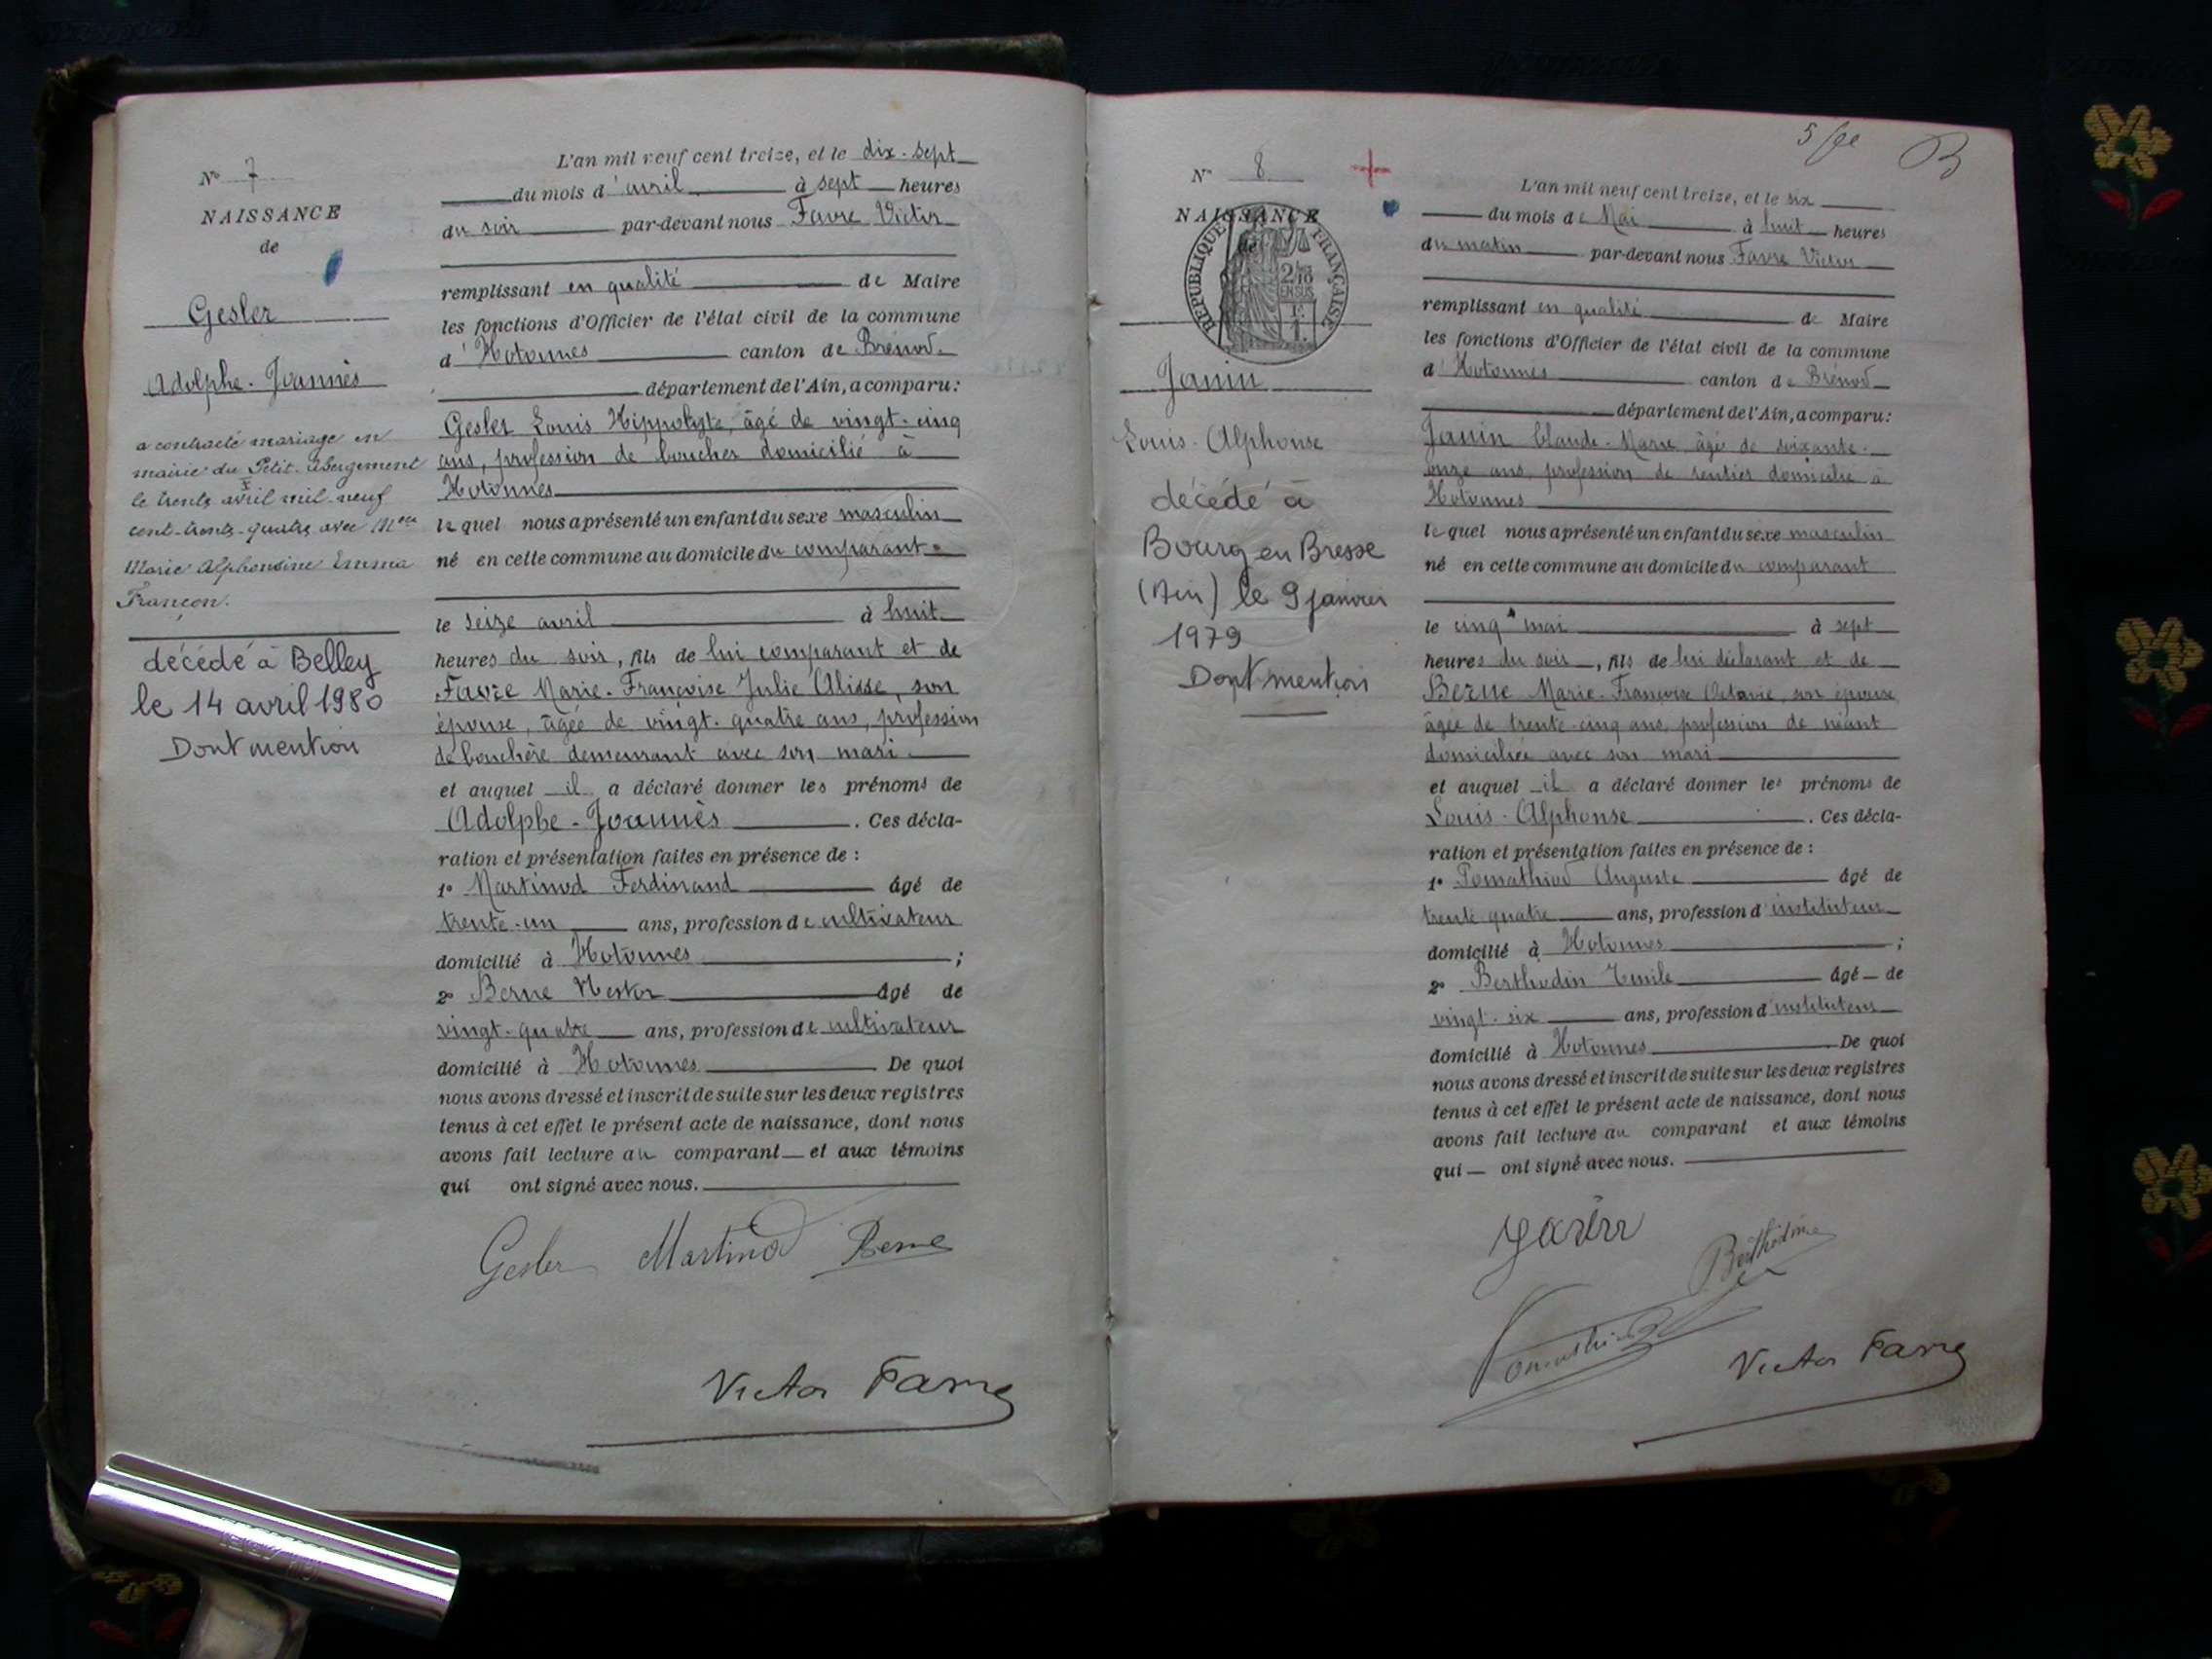 N° 7
NAISSANCE
de
Gesler
Adolphe-Joannès
a contracté mariage en
mairie du Petit-Abergement
le trente avril mil-neuf
cent-trente-quatre avec Melle
Marie Alphonsine Emma
Françon.
décédé à Belley
le 14 avril 1980
Dont mention
L'an mil neuf cent treize, et le dix-sept
du mois d'avril à sept heures
du soir par-devant nous Favre Victor
remplissant en qualité de Maire
les fonctions d'Officier de l'état civil de la commune
d'Hotonnes canton de Brénod
département de l'Ain, a comparu:
Gesler Louis Hippolyte, âgé de vingt-cinq
ans, profession de boucher domicilié à
Hotonnes
lequel nous a présenté un enfant du sexe masculin
né en cette commune au domicile du comparant
le seize avril à huit
heures du soir, fils de lui comparant et de
Favre Marie-Françoise Julie Alisse, son
épouse, âgée de vingt-quatre ans, profession
de bouchère demeurant avec son mari
et auquel il a déclaré donner les prénoms de
Adolphe-Joannès. Ces décla-
ration et présentation faites en présence de :
1° Martinod Ferdinand âgé de
trente-un ans, profession de cultivateur
domicilié à Hotonnes ;
2° Berne Nestor âgé de
vingt-quatre ans, profession de cultivateur
domicilié à Hotonnes De quoi
nous avons dressé et inscrit de suite sur les deux registres
tenus à cet effet le présent acte de naissance, dont nous
avons fait lecture au comparant et aux témoins
qui ont signé avec nous.
Gesler Martinod Berne
Victor Favre
5 B
N° 8
NAISSANCE
de
RÉPUBLIQUE FRANÇAISE
2/10
EN SUS
Janin
Louis-Alphonse
décédé à
Bourg en Bresse
(Ain) le 9 janvier
1979
Dont mention
L'an mil neuf cent treize, et le six
du mois de Mai à huit heures
du matin par-devant nous Favre Victor
remplissant en qualité de Maire
les fonctions d'Officier de l'état civil de la commune
d'Hotonnes canton de Brénod
département de l'Ain, a comparu:
Janin Claude-Marie âgé de soixante-
onze ans, profession de rentier domicilié à
Hotonnes
lequel nous a présenté un enfant du sexe masculin
né en cette commune au domicile du comparant
le cinq mai à sept
heures du soir, fils de lui déclarant et de
Berne Marie-Françoise Octavie, son épouse,
âgée de trente-cinq ans, profession de néant
domiciliée avec son mari
et auquel il a déclaré donner les prénoms de
Louis-Alphonse. Ces décla-
ration et présentation faites en présence de :
1° Pomathiod Auguste âgé de
trente quatre ans, profession d'instituteur
domicilié à Hotonnes ;
2° Berthodin Emile âgé de
vingt-six ans, profession d'instituteur
domicilié à Hotonnes De quoi
nous avons dressé et inscrit de suite sur les deux registres
tenus à cet effet le présent acte de naissance, dont nous
avons fait lecture au comparant et aux témoins
qui ont signé avec nous.
Janin
Victor Favre